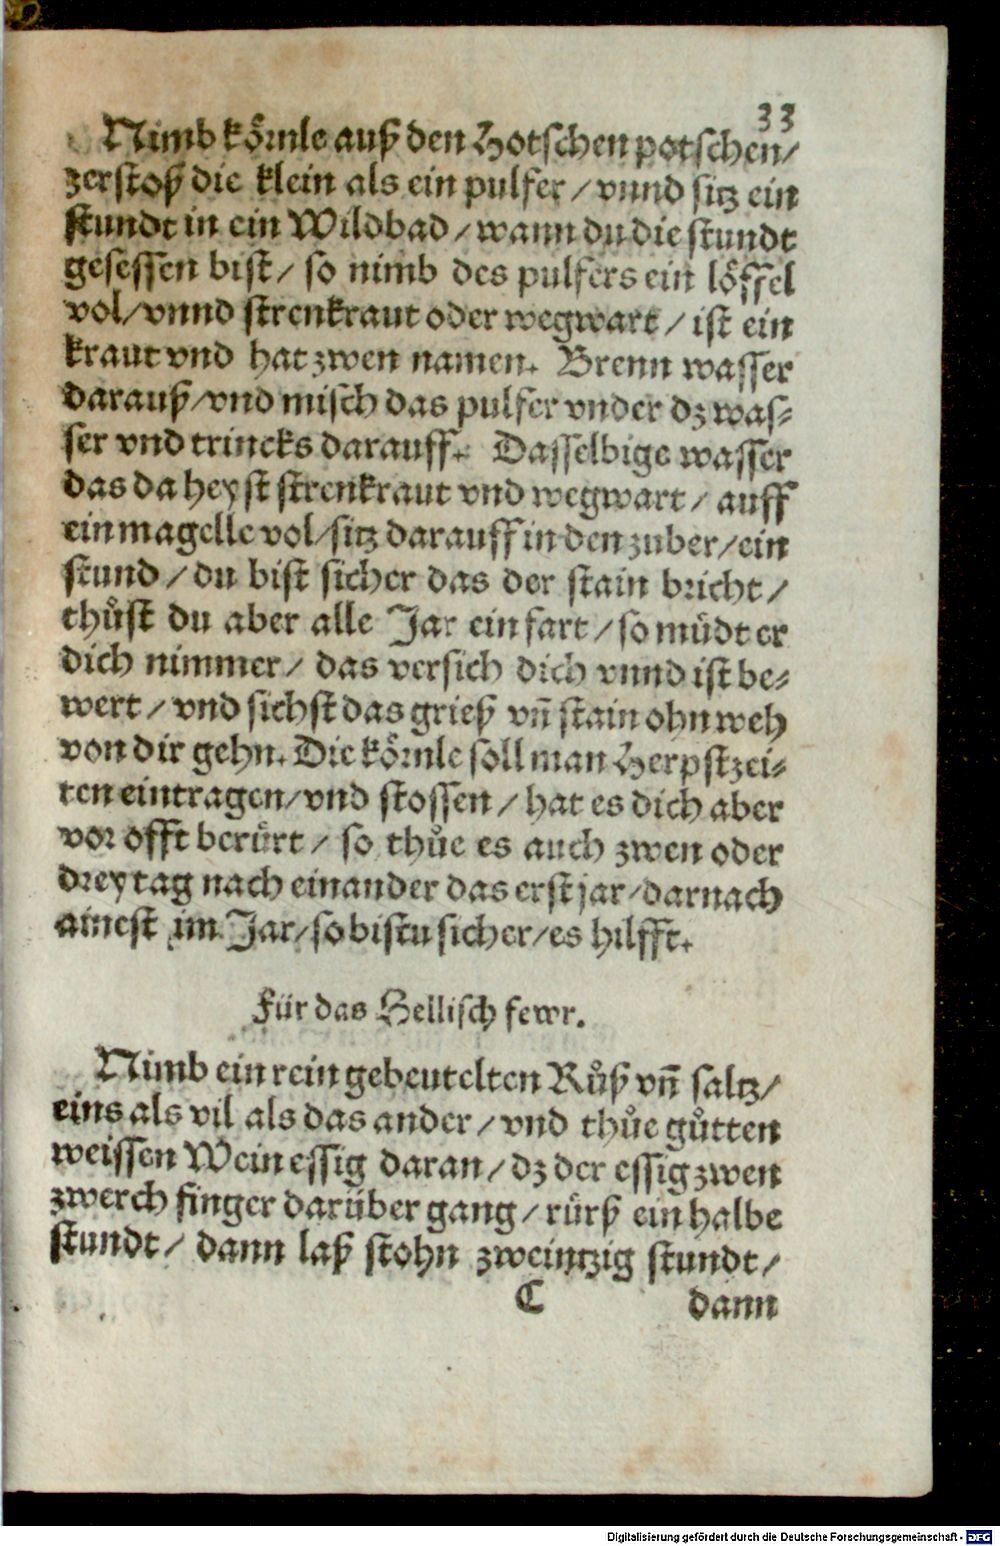 33
Nimb körnle auß den Hotschenpotschen/
zerstoß die klein als ein pulfer / vnnd sitz ein
stundt in ein Wildbad / wann du die stundt
gesessen bist / so nimb des pulfers ein löffel
vol / vnnd strenkraut oder wegwart / ist ein
kraut vnd hat zwen namen. Brenn wasser
darauß / vnd misch das pulfer vnder dz was⸗
ser vnd trincks darauff. Dasselbige wasser
das da heyst strenkraut vnd wegwart / auff
ein magelle vol / sitz darauff in den zuber / ein
stund / du bist sicher das der stain bricht /
thůst du aber alle Jar ein fart / so müdt er
dich nimmer / das versich dich vnnd ist be⸗
wert / vnd sichst das grieß vn̄ stain ohn weh
von dir gehn. Die körnle soll man Herpstzei⸗
ten eintragen / vnd stossen / hat es dich aber
vor offt berürt / so thůe es auch zwen oder
drey tag nach einander das erst jar / darnach
ainest im Jar / so bistu sicher / es hilfft.
Für das Hellisch fewr.
Nimb ein rein gebeutelten Růß vn̄ saltz /
eins als vil als das ander / vnd thůe gůtten
weissen Wein essig daran / dz der essig zwen
zwerch finger darüber gang / rürß ein halbe
stundt / dann laß stohn zweintzig stundt /
C dann
Digitalisierung gefördert durch die Deutsche Forschungsgemeinschaft - DFG